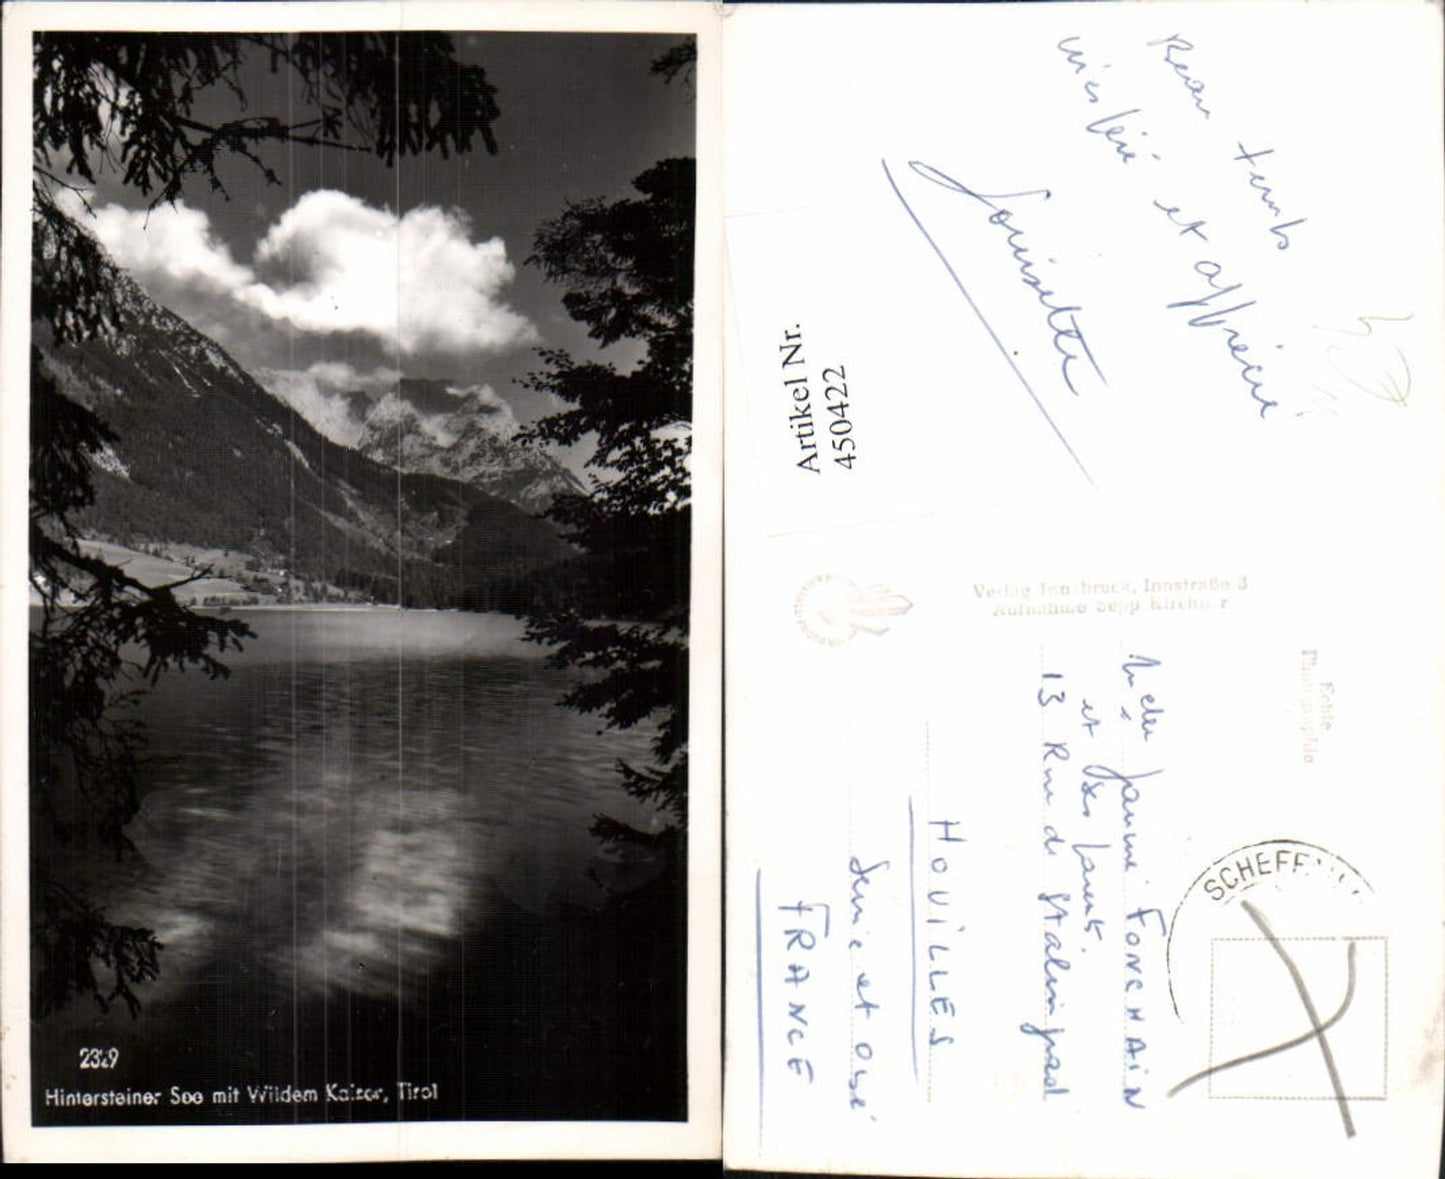 2329
Hintersteiner See mit Wildem Kaiser, Tirol
Beau temps
et apprécié
Louisette
Artikel Nr.
450422
Verlag Innsbruck, Innstraße 3
Aufnahme Sepp Kirchner
Echte
Photographie
SCHEFF
Janine FONCHAIN
et ses
13 Rue de Stalingrad
HOUILLES
Seine et Oise
FRANCE